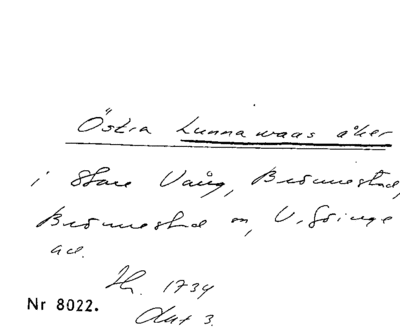 Östra Lunnawaas åker
i Stora Vång, Brönnestad,
Brönnestad sn, V. Göinge
hd.
1734
Akt 3.
Nr 8022.